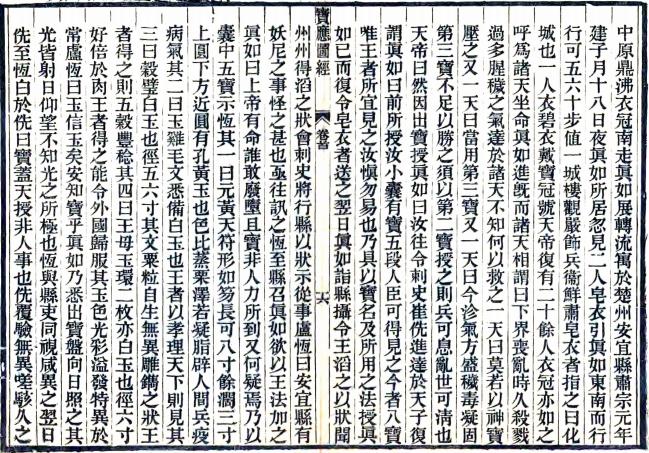 中原鼎沸衣冠南走眞如展轉流寓於楚州安宜縣肅宗元年
建子月十八日夜眞如所居忽見二人皂衣引眞如東南而行
行可五六十步値一城樓觀嚴飾兵衞鮮肅皂衣者指之曰化
城也一人衣碧衣戴寶冠號天帝復有二十餘人衣冠亦如之
呼爲諸天坐命眞如進旣而諸天相謂曰下界喪亂時久殺戮
過多腥穢之氣達於諸天不知何以救之一天曰莫若以神寶
壓之又一天曰當用第三寶又一天曰今沴氣方盛穢毒凝固
第三寶不足以勝之須以第二寶授之則兵可息亂世可淸也
天帝曰然因出寶授眞如曰汝往令刺史崔侁進達於天子復
謂眞如曰前所授汝小囊有寶五段人臣可得見之今者八寶
唯王者所宜見之汝愼勿易也乃具以寶名及所用之法授眞
如已而復令皂衣者送之翌日眞如詣縣攝令王滔之以狀聞
寶應圖經
卷首
六
州州得滔之狀會刺史將行縣以狀示從事盧恆曰安宜縣有
妖尼之事怪之甚也亟往訊之恆至縣召眞如欲以王法加之
眞如曰上帝有命誰敢廢墜且寶非人力所到又何疑焉乃以
囊中五寶示恆其一曰元黃天符形如笏長可八寸餘濶三寸
上圓下方近圓有孔黃玉也色比蒸栗澤若凝脂辟人間兵疫
病氣其二曰玉雞毛文悉備白玉也王者以孝理天下則見其
三曰穀璧白玉也徑五六寸其文粟粒自生無異雕鐫之狀王
者得之則五穀豐稔其四曰王母玉環二枚亦白玉也徑六寸
好倍於肉王者得之能令外國歸服其玉色光彩溢發特異於
常盧恆曰玉信玉矣安知寶乎眞如乃悉出寶盤向日照之其
光皆射日仰望不知光之所極也恆與縣吏同視咸異之翌日
侁至恆白於侁曰寶蓋天授非人事也侁覆驗無異嗟駭久之